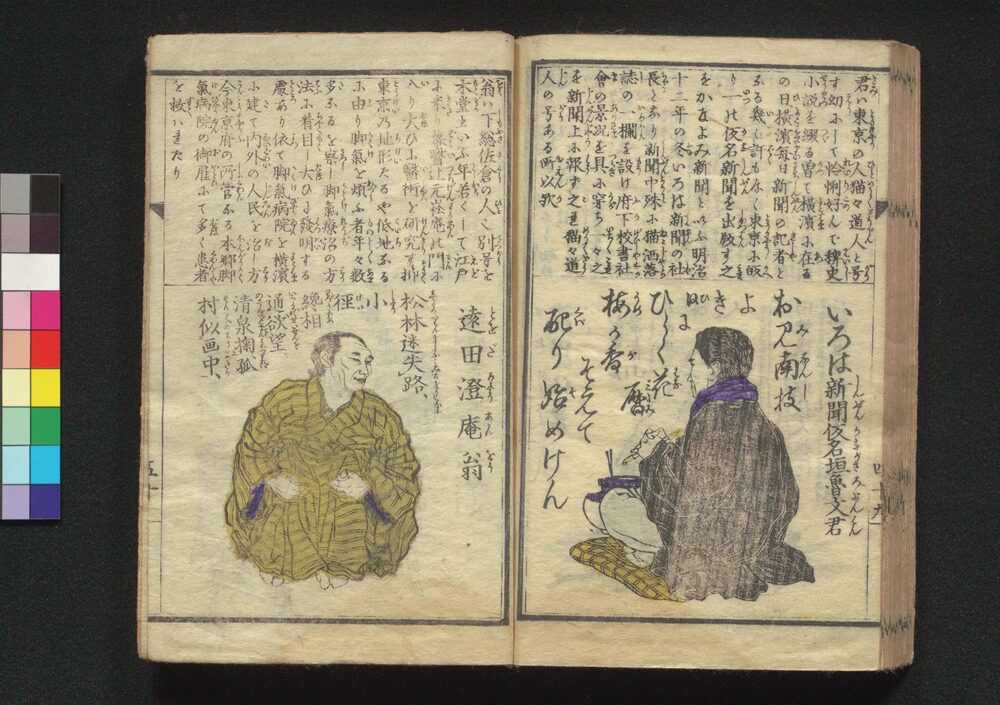 君ハ東京の人猫々道人と号
す幼にして怜悧好んで稗史
小説を綴る曽て横濱に在る
の日横濱毎日新聞の記者と
なる幾許もなく東京に皈
り一の仮名新聞を出版す之
をかなよみ新聞といふ明治
十二年の冬いろは新聞の社
長となり新聞中殊に猫洒落
誌の一欄を設け府下校書社
會の景況を具に穿ち一々之
を新聞上に報ず之れ猫々道
人の号ある所以歟
いろは新聞仮名垣魯文君
お見南枝
よき日に
ひらく花暦
梅が香そへて
配り始めけん
四十九
翁ハ下総佐倉の人別号を
木堂といふ年若くして江戸
に来り
入り大ひに醫術を研究す抑
東京の地形たるや低地なる
に由り脚氣を煩ふ者年々数
多なるを察し脚氣療治の方
法に着目し大ひに發明する
處あり依て脚氣病院を横濱
に建て内外の人民を治し方
今東京府の所管なる本郷脚
氣病院の御雇にて多く患者
を救ハれたり
遠田澄庵翁
松林迷失路、
小徑
纔相通、
欲望清泉掬、
孤村似画中、
五十